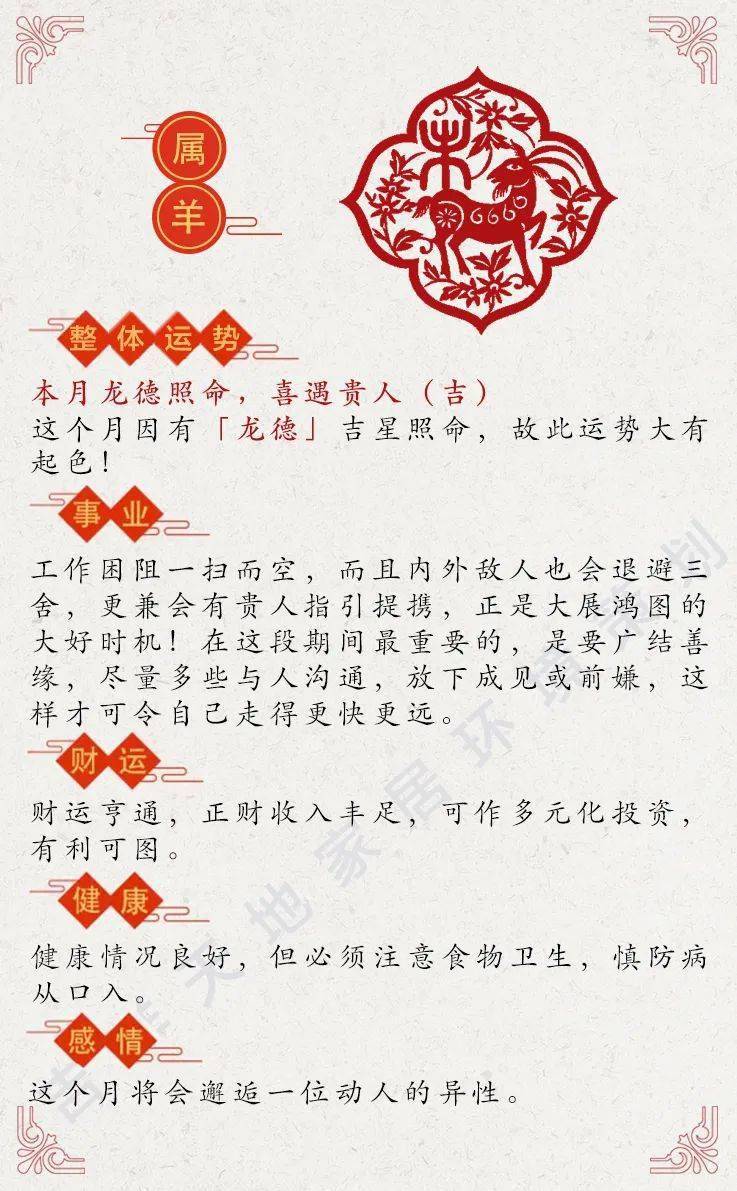 属
羊
未
整体运势
本月龙德照命，喜遇贵人（吉）
这个月因有「龙德」吉星照命，故此运势大有
起色！
事业
工作困阻一扫而空，而且内外敌人也会退避三
舍，更兼会有贵人指引提携，正是大展鸿图的
大好时机！在这段期间最重要的，是要广结善
缘，尽量多些与人沟通，放下成见或前嫌，这
样才可令自己走得更快更远。
财运
财运亨通，正财收入丰足，可作多元化投资，
有利可图。
健康
健康情况良好，但必须注意食物卫生，慎防病
从口入。
感情
这个月将会邂逅一位动人的异性。
天地家居环境策划